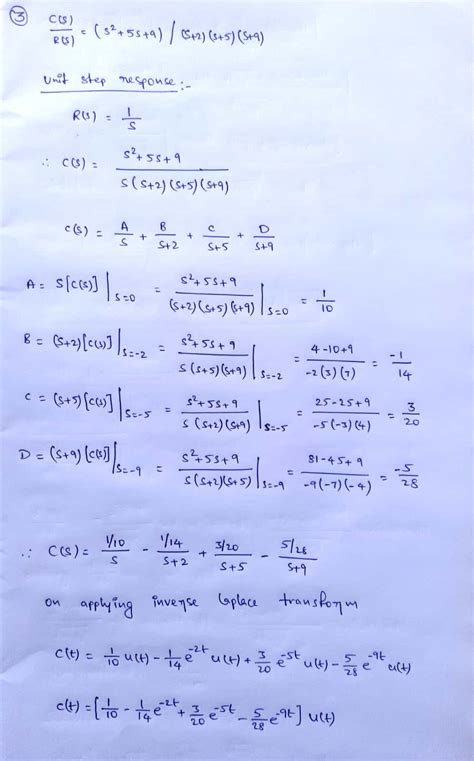 ③ C(s)/R(s) = (s²+5s+9) / (s+2)(s+5)(s+9)
Unit step response:-
R(s) = 1/s
∴ C(s) = s²+5s+9 / s(s+2)(s+5)(s+9)
C(s) = A/s + B/s+2 + C/s+5 + D/s+9
A = s[C(s)]|s=0 = s²+5s+9 / (s+2)(s+5)(s+9) |s=0 = 1/10
B = (s+2)[C(s)]|s=-2 = s²+5s+9 / s(s+5)(s+9) |s=-2 = 4-10+9 / -2(3)(7) = -1/14
C = (s+5)[C(s)]|s=-5 = s²+5s+9 / s(s+2)(s+9) |s=-5 = 25-25+9 / -5(-3)(4) = 3/20
D = (s+9)[C(s)]|s=-9 = s²+5s+9 / s(s+2)(s+5) |s=-9 = 81-45+9 / -9(-7)(-4) = -5/28
∴ C(s) = 1/10/s - 1/14/s+2 + 3/20/s+5 - 5/28/s+9
on applying inverse laplace transform
c(t) = 1/10 u(t) - 1/14 e^-2t u(t) + 3/20 e^-5t u(t) - 5/28 e^-9t u(t)
c(t) = [1/10 - 1/14 e^-2t + 3/20 e^-5t - 5/28 e^-9t] u(t)